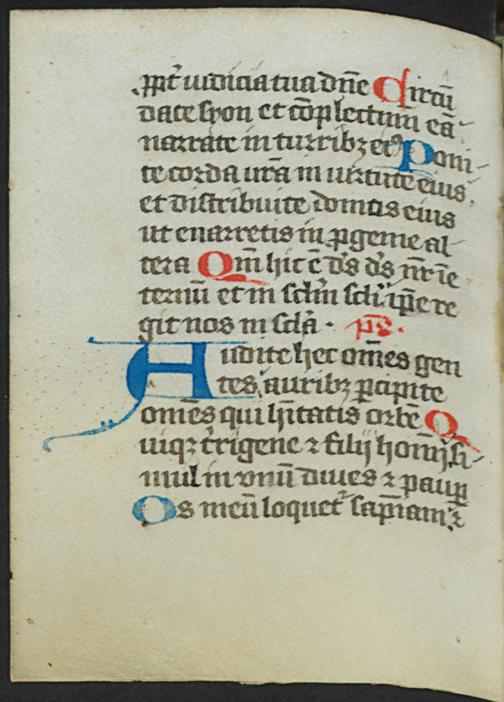 ppt̄ iudicia tua dn̄e Circū
date syon et cōplectimī eā
narrate in turribꝫ eiꝰ Poni
te corda vr̄a in uirtute eius
et distribuite domus eius
ut enarretis in ꝓgenie al
tera Qm̄ hic ē ds̄ ds̄ nr̄ ī e
ternū et in sc̄lm sc̄li ip̄e re
git nos in sc̄la · ps̄ ·
Audite hec om̄es gen
tes auribꝫ ꝑcipite
om̄es qui hītatis orbē Q
uiqꝫ t̄rigene ⁊ filij hoīm si
mul in vnū diues ⁊ pauꝑ
Os meū loquet᷑ sapīam ⁊